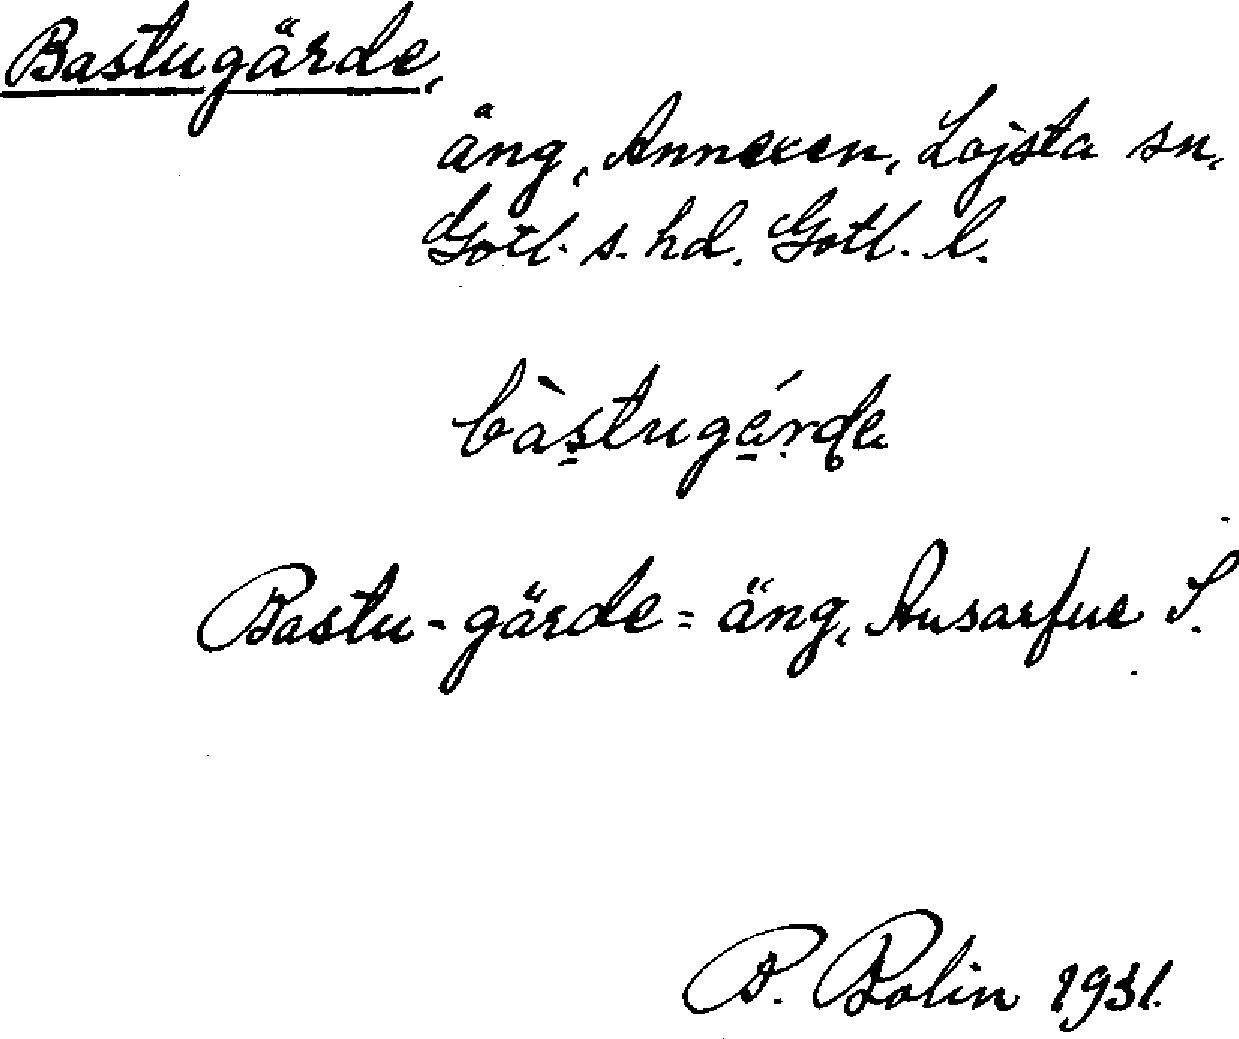 Bastugärde,
äng, Annexen, Lojsta sn,
Gotl. s. hd. Gotl. l.
bàstugárde
Bastu-gärde = äng, Ausarfue S.
P. Bolin 1931.